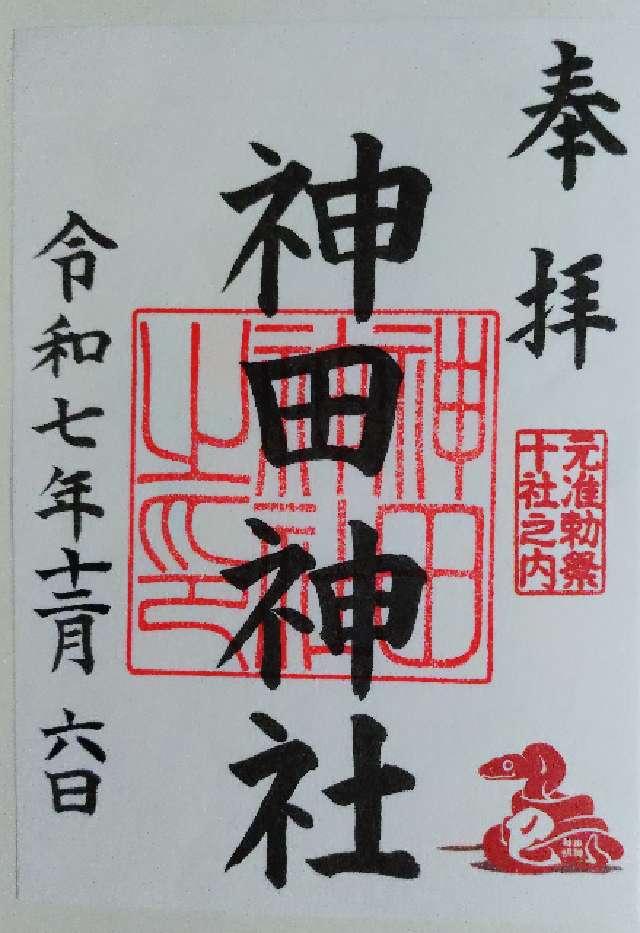 奉拝
元准勅祭
十社之内
神田神社
神田
神社
之印
令和七年十二月六日
巳